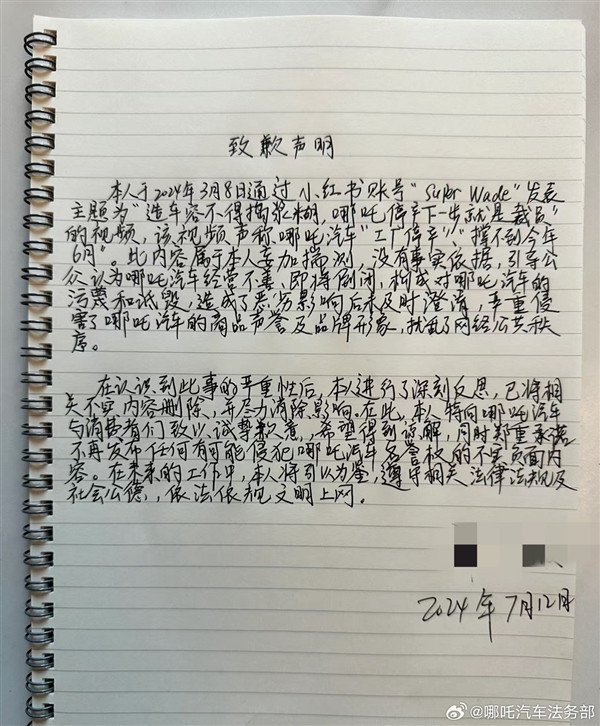 致歉声明
本人于2024年3月8日通过小红书账号“Super Wade”发表
主题为“造车容不得捣浆糊，哪吒停产下一步就是裁员”
的视频，该视频声称哪吒汽车“工厂停产”，“撑不到今年
6月”。此内容属于本人妄加揣测，没有事实依据，引导公
众认为哪吒汽车经营不善，即将倒闭，构成对哪吒汽车的
污蔑和诋毁，造成了恶劣影响后未及时澄清，严重侵
害了哪吒汽车的商品声誉及品牌形象，扰乱了网络公共秩
序。
在认识到此事的严重性后，本人进行了深刻反思，已将相
关不实内容删除，并尽力消除影响。在此，本人特向哪吒汽车
与消费者们致以诚挚歉意，希望得到谅解，同时郑重承诺
不再发布任何有可能侵犯哪吒汽车名誉权的不实负面内
容。在未来的工作中，本人将引以为鉴，遵守相关法律法规及
社会公德，依法依规文明上网。
2024年7月12日
@哪吒汽车法务部